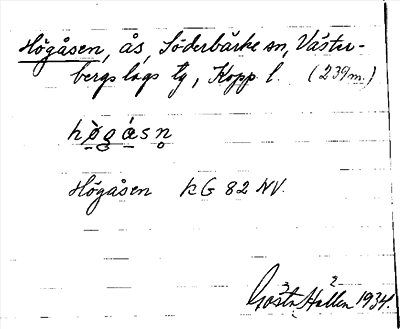 Högåsen, ås, Söderbärke sn, Väster-
bergslags tg, Kopp l. (239m.)
högåsn̥
Högåsen kG 82 NV.
3 2
Gösta Hallen 1934.